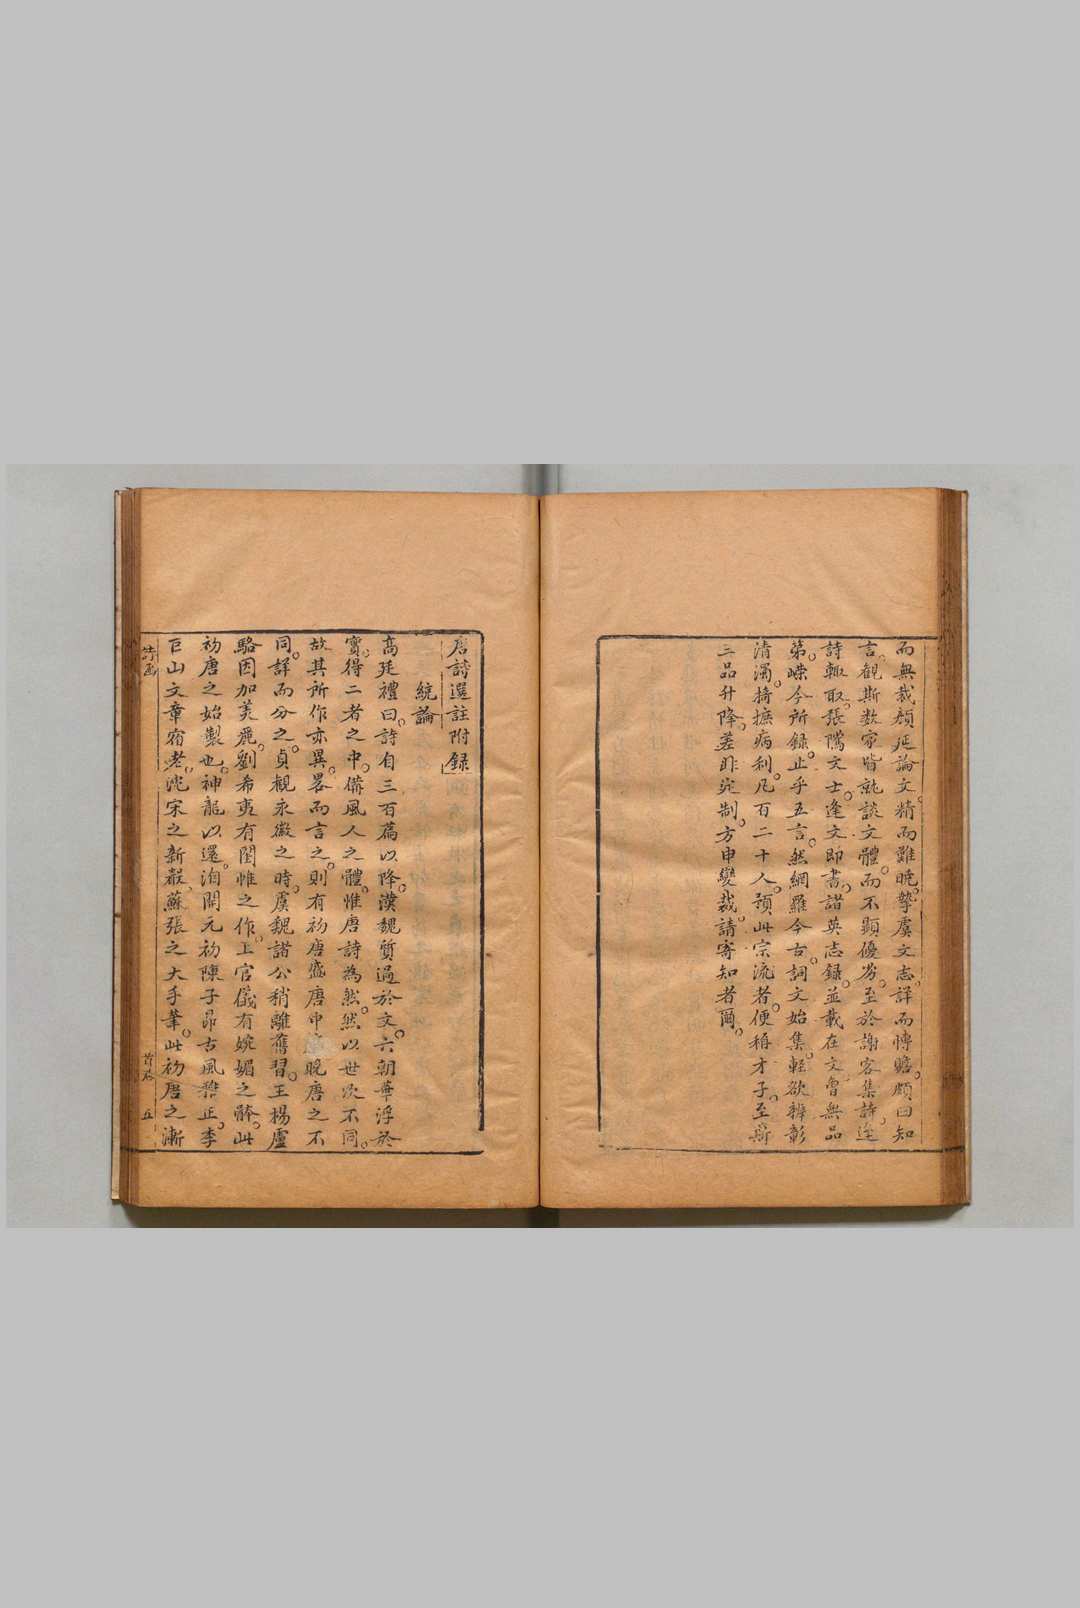 而無裁顏延論文。精而難曉。摯虞文志。詳而博贍。頗曰知
言。觀斯数家。皆就談文體。而不顯優劣。至於謝客集詩。逢
詩輒取。張隲文士。逢文即書。諸英志録。並載在文。曾無品
第。嶸今所録。止乎五言。然網羅今古。詞文始集。輕欲辨彰
清濁。掎摭病利。凡百二十人。預此宗流者。便稱才子。至斯
三品升降。差非定制。方申變裁。請寄知者爾。
唐詩選註附録
統論
高廷禮曰。詩自三百篇以降。漢魏質過於文。六朝華浮於
實。得二者之中。備風人之體。惟唐詩為然。然以世次不同。
故其所作亦異。畧而言之。則有初唐盛唐中唐晚唐之不
同。詳而分之。貞觀永徽之時。虞魏諸公稍離舊習。王楊盧
駱因加美麗。劉希夷有閨帷之作。上官儀有婉媚之體。此
初唐之始製也。神龍以還。洎開元初。陳子昂古風雅正。李
巨山文章宿老。沈宋之新聲。蘇張之大手筆。此初唐之漸
五